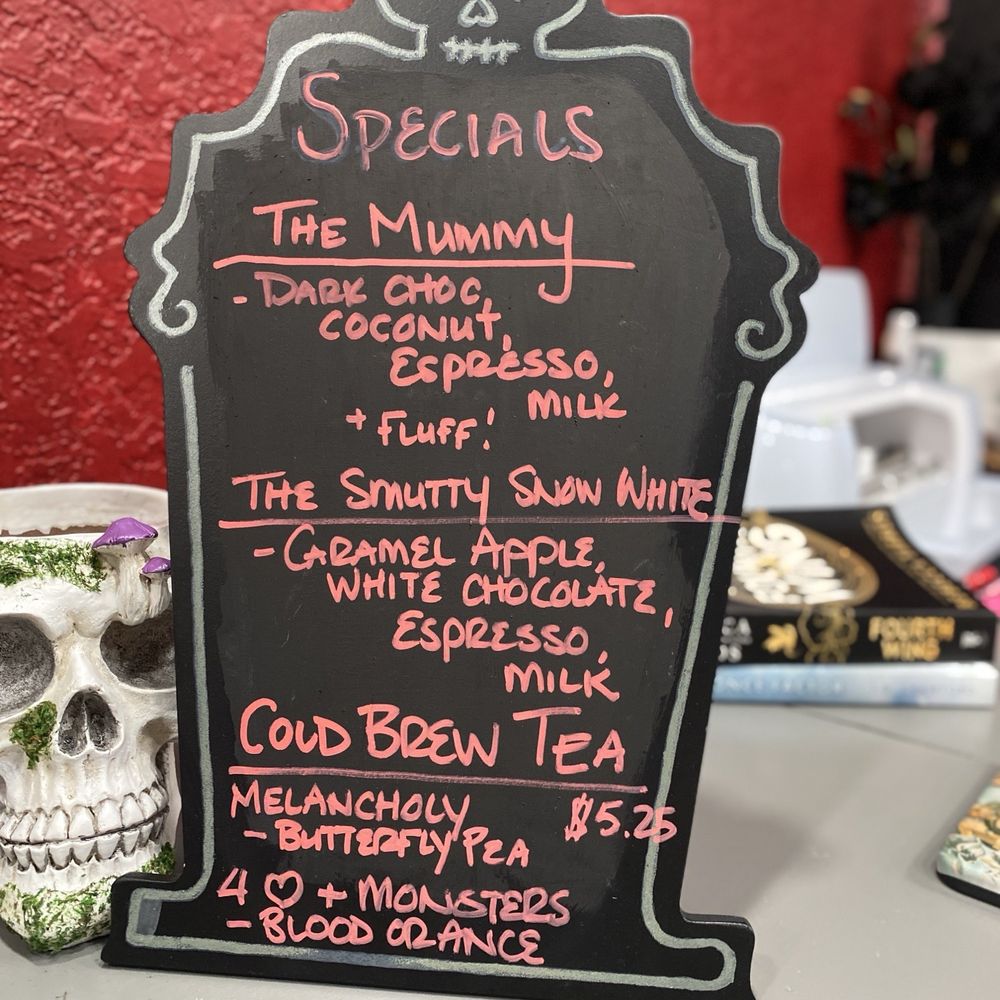 SPECIALS
THE MUMMY
- DARK CHOC,
COCONUT,
ESPRESSO,
MILK
+ FLUFF!
THE SMUTTY SNOW WHITE
- CARAMEL APPLE,
WHITE CHOCOLATE,
ESPRESSO,
MILK
COLD BREW TEA
MELANCHOLY $5.25
- BUTTERFLY PEA
4 ♡ + MONSTERS
- BLOOD ORANGE
FOURTH
WING